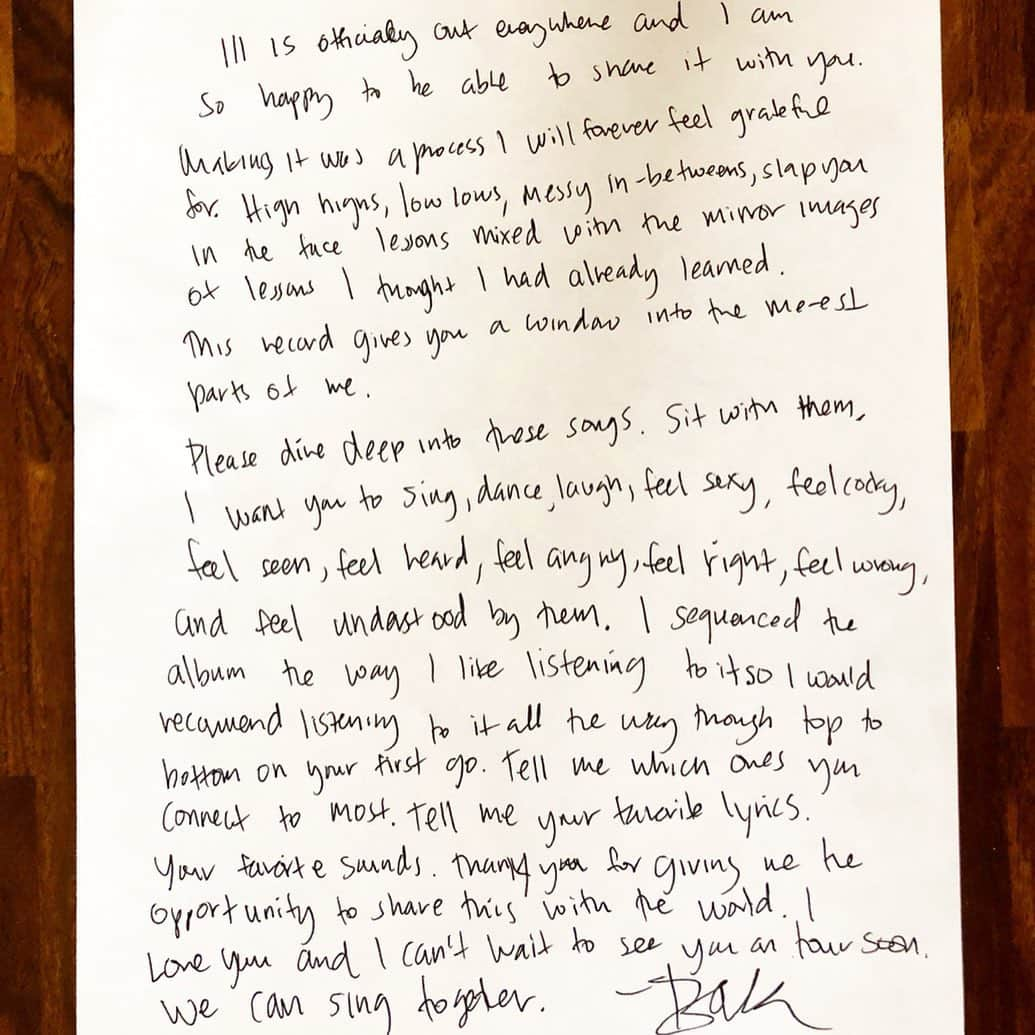 III is officially out everywhere and I am
so happy to be able to share it with you.
Making it was a process I will forever feel grateful
for. High highs, low lows, messy in-betweens, slap you
in the face lessons mixed with the mirror images
of lessons I thought I had already learned.
This record gives you a window into the me-est
parts of me.
Please dive deep into these songs. Sit with them.
I want you to sing, dance, laugh, feel sexy, feel cocky,
feel seen, feel heard, feel angry, feel right, feel wrong,
and feel understood by them. I sequenced the
album the way I like listening to it so I would
recommend listening to it all the way through top to
bottom on your first go. Tell me which ones you
connect to most. Tell me your favorite lyrics.
Your favorite sounds. Thank you for giving me the
opportunity to share this with the world. I
love you and I can't wait to see you on tour soon.
We can sing together. -